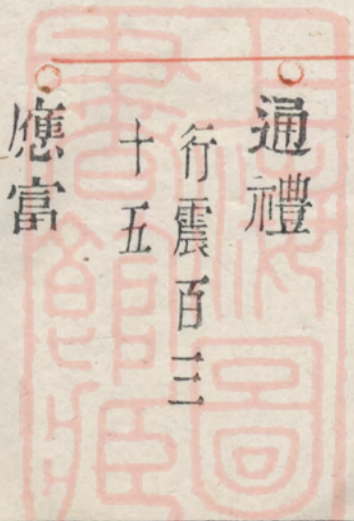 通禮
行震百三
十五
應富